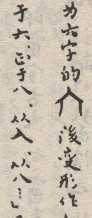 为六字的後变形作
于六、正于八、从入、从八…」